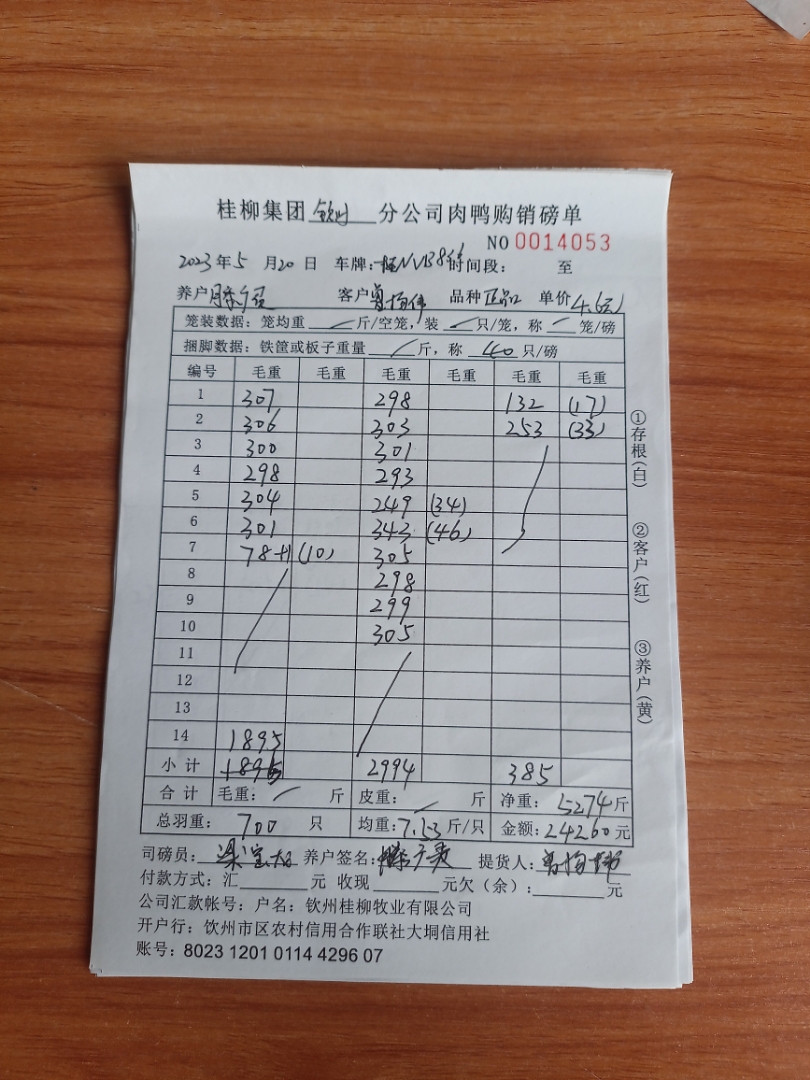 桂柳集团 钦州 分公司肉鸭购销磅单
NO 0014053
2023年5月20日 车牌: 时间段: 至
养户 客户 曾 伟 品种 正品 单价 4.6元
笼装数据:笼均重 斤/空笼,装 只/笼,称 笼/磅
捆脚数据:铁筐或板子重量 斤,称 40 只/磅
编号 毛重 毛重 毛重 毛重 毛重 毛重
1 307 298 132 (17)
2 306 303 253 (33)
3 300 301
4 298 293
5 304 249 (34)
6 301 343 (46)
7 78+1 (10) 305
8 298
9 299
10 305
11
12
13
14 1895
小计 2994 385
合计 毛重: 斤 皮重: 斤 净重: 5274斤
总羽重: 700 只 均重:7.53斤/只 金额:24260元
司磅员: 养户签名: 提货人:
付款方式:汇 元 收现 元欠(余): 元
公司汇款帐号:户名:钦州桂柳牧业有限公司
开户行:钦州市区农村信用合作联社大垌信用社
账号:8023 1201 0114 4296 07
①存根(白)
②客户(红)
③养户(黄)